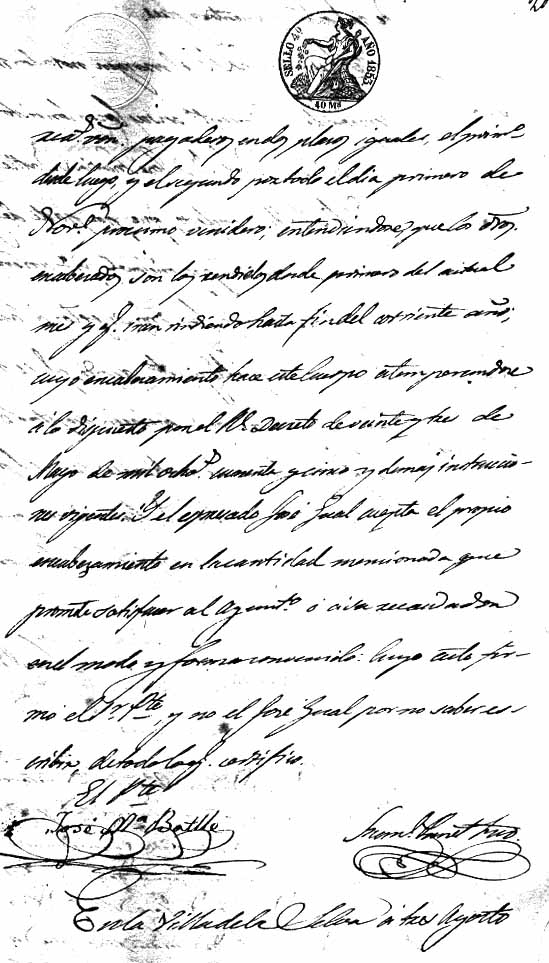 SELLO 4º AÑO 1853
40 Ms
pagaderos en dos plazos iguales, el prim.º
desde luego, y el segundo por todo el dia primero de
Nov.e procsimo venidero; entendiendose, que los dros.
encabezados son los vendidos desde primero del actual
mes y q.e irán rindiendo hasta fin del corriente año;
cuyo encabezamiento hace este Cuerpo atemperandose
á lo dispuesto por el Rl. Decreto de veinte y tres de
Mayo de mil ocho.s cuarenta y cinco y demas instruccio-
nes vigentes. Y el espresado José Gual acepta el propio
encabezamiento en la cantidad mencionada que
promete satisfacer al Ayunt.º ó á su recaudador
en el modo y forma convenido: cuyo acto fir-
mó el Sr. Pte., y no el José Gual por no saber es-
cribir, de todo lo q. certifico.
El Pte
José Mª Batlle
En la Villa de la Selva á tres Agosto